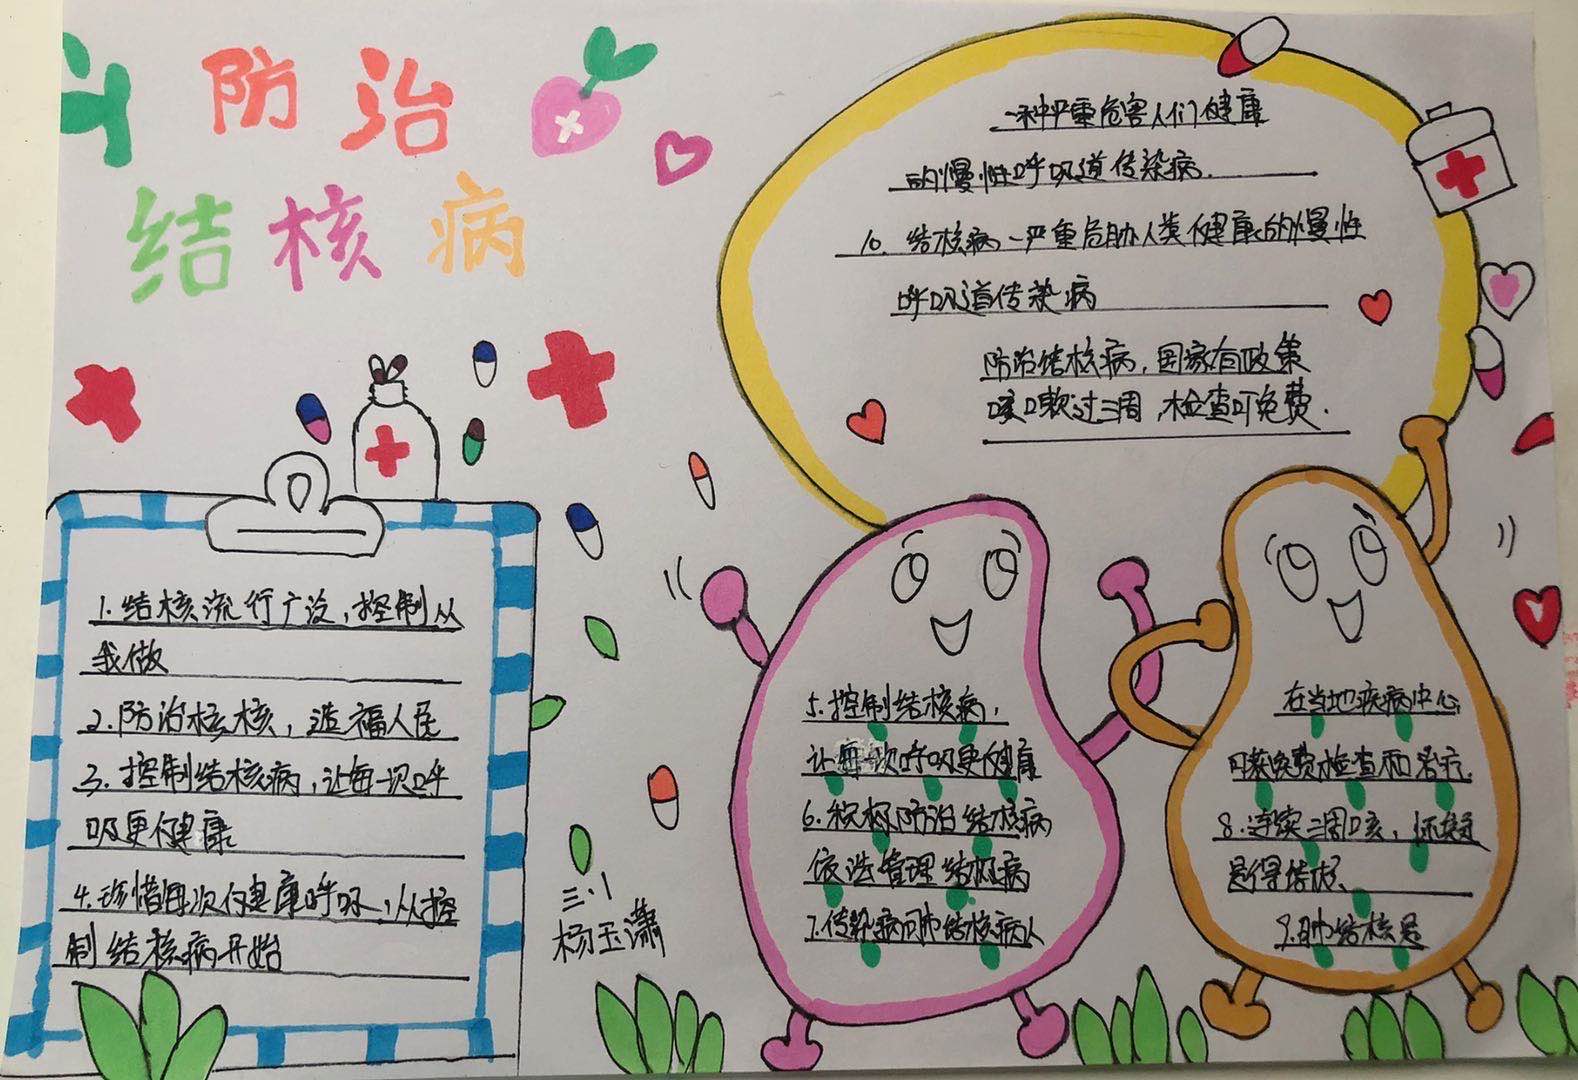 防治
结核病
1.结核流行广泛,控制从
我做
2.防治核核,造福人民
3.控制结核病,让每一次呼
吸更健康
4.珍惜每次健康呼吸,从控
制结核病开始
三.1
杨玉潇
5.控制结核病,
让每一次呼吸更健康
6.积极防治结核病
依法管理结核病
7.传染病 结核病人
在当地疾病中心
可获免费检查和治疗.
8.连续三周咳,怀疑
是得
9.肺结核是
一种严重危害人们健康
的慢性呼吸道传染病.
10.结核病一严重危胁人类健康的慢性
呼吸道传染病
防治结核病,国家有政策
咳嗽过三周,检查可免费.